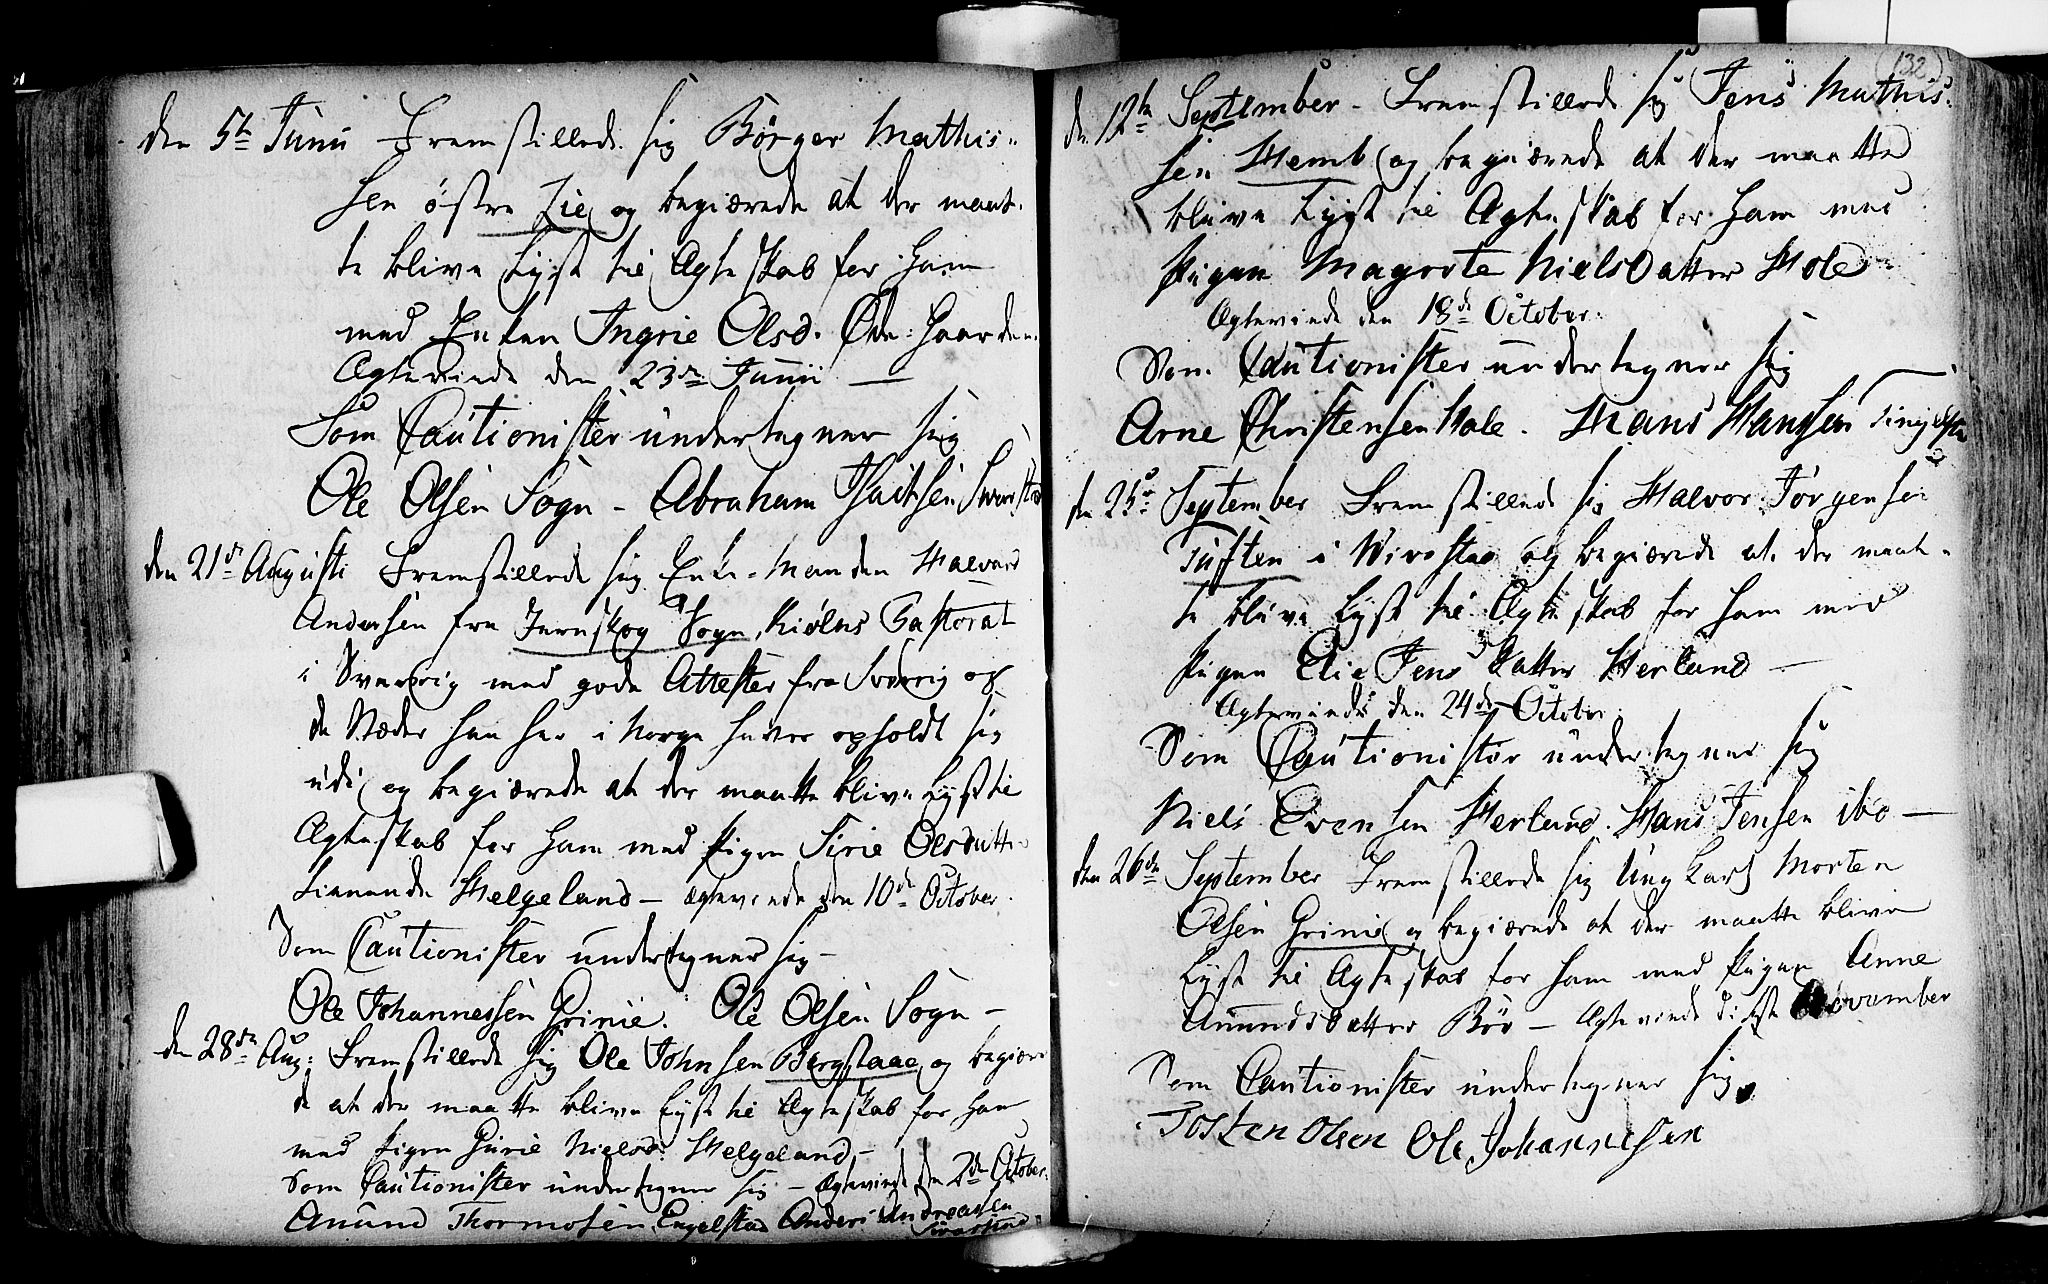 den 5te Junii Fremstillede sig Børger Mathis-
sen østre Lie og begiærede at der maat-
te blive Lyst til Ægteskab for ham
med Enken Ingrie Olsd. Øde-Gaarden.
Ægteviede den 23de Junii —
Som Cautionister undertegner sig
Ole Olsen Sogn - Abraham Isachsen
den 21de Augusti Fremstillede sig Enke-Manden Halvord
Andersen fra Jernskog Sogn, Kiølns Pastorat
i Sverrig med gode Attester fra Sverrig og
de Stæder han her i Norge haver opholdt sig
udi og begiærede at der maatte blive Lyst til
Ægteskab for ham med Pigen Sirie Olsdatter
tienende Helgeland — Ægteviede den 10de October.
Som Cautionister undertegner sig —
Ole Johannessen Grinie. Ole Olsen Sogn —
den 28de Aug: Fremstillede sig Ole Johnsen Bergstaae og begiære-
de at der maatte blive Lyst til Ægteskab for ham
med Pigen Gurie Nielsd: Helgeland —
Som Cautionister undertegner sig — Ægteviede den 2den October.
Amund Thormosen Engelstad Anders Andreasen
132
den 12te September - Fremstillede sig Jens Mathis-
sen Hemb og begiærede at der maatte
blive Lyst til Ægteskab for ham med
Pigen Magrete Nielsdatter Hole
Ægteviede den 18de October.
Som Cautionister undertegner sig
Arne Christensen Hole. Hans Hansen
den 25de September Fremstillede sig Halvor Jørgensen
Tuften i Wivestad og begiærede at der maat-
te blive Lyst til Ægteskab for ham med
Pigen Elie Jens Datter Herland —
Ægteviede den 24de October.
Som Cautionister undertegner sig
Niels Evensen Herland. Hans Jensen ibd —
den 26de September Fremstillede sig Ung Karl Morten
Olsen Grinie og begiærede at der maatte blive
Lyst til Ægteskab for ham med Pigen Anne
Amundsdatter Bøe — Ægteviede November
Som Cautionister undertegner sig
Tosten Olsen Ole Johannesen